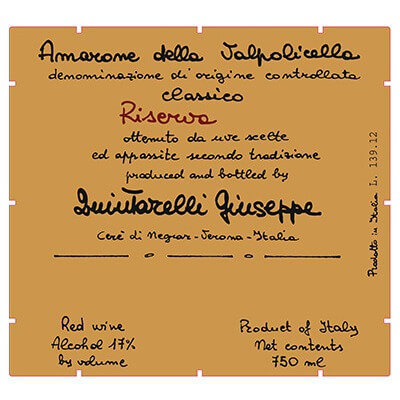 Amarone della Valpolicella
denominazione di origine controllata
classico
Riserva
ottenuto da uve scelte
ed appassite secondo tradizione
produced and bottled by
Quintarelli Giuseppe
Cerè di Negrar-Verona-Italia
Red wine
Alcohol 17%
by volume
Product of Italy
Net contents
750 ml
Prodotto in Italia L. 139.12